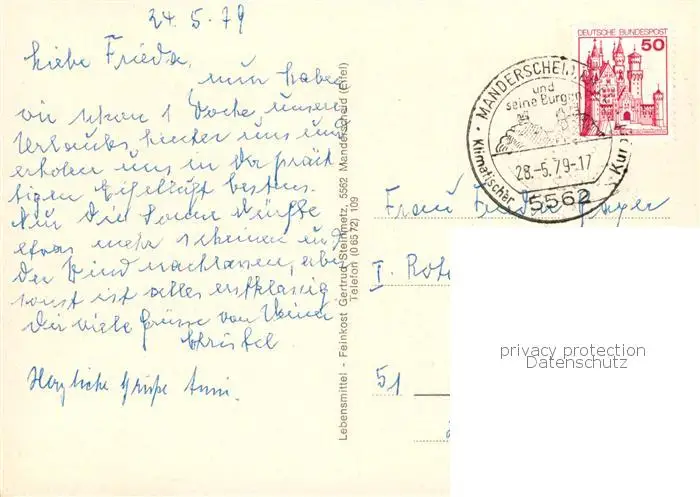 24.5.79
Liebe Frieda,
nun haben
wir schon 1 Woche unseres
Urlaubs hinter uns und
erholen uns in der präch-
tigen Eifelluft bestens.
Nur die Sonne dürfte
etwas mehr scheinen und
der Wind nachlassen, aber
sonst ist alles erstklassig.
Dir viele Grüsse von Deiner
Christel
Herzliche Grüße Anni.
Lebensmittel - Feinkost Gertrud Steinmetz, 5562 Manderscheid (Eifel)
Telefon (0 65 72) 109
DEUTSCHE BUNDESPOST
50
MANDERSCHEID
und
seine Burgen
28.-5.79.-17
5562
Klimatischer Kurort
Frau Frieda
I. Rote
51
privacy protection
Datenschutz